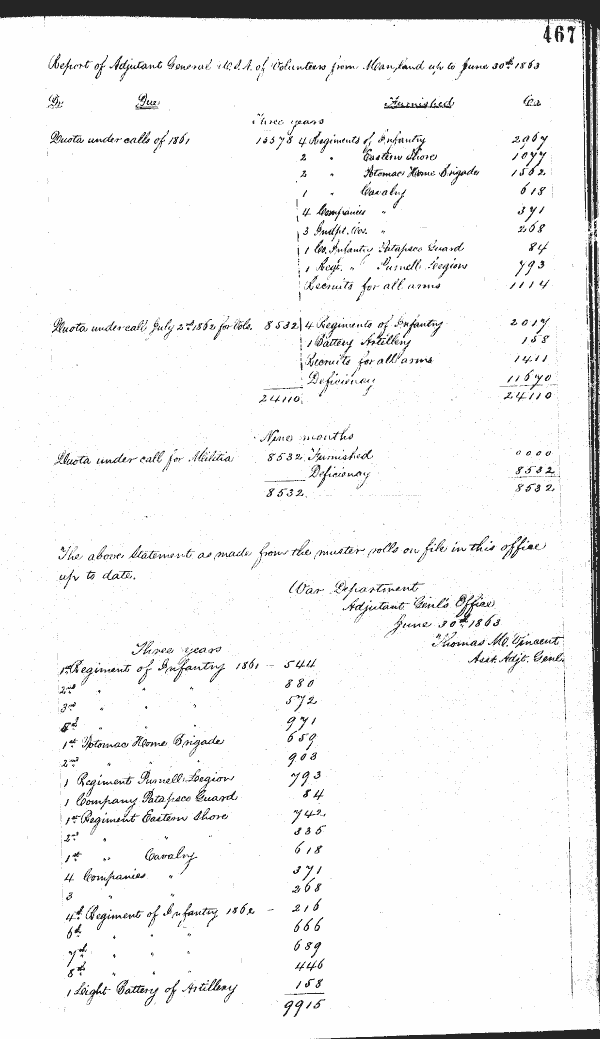 467
Report of Adjutant General U.S.A. of Volunteers from Maryland up to June 30th 1863
Dr. Due Furnished Cr.
Three years
Quota under calls of 1861 15578 4 Regiments of Infantry 2967
2 " Eastern Shore 1077
2 " Potomac Home Brigade 1562
1 " Cavalry 618
4 Companies " 371
3 Indpt. Cos. " 268
1 Co. Infantry Patapsco Guard 84
1 Regt. " Purnell Legion 793
Recruits for all arms 1114
Quota under call July 2nd 1862 for Vols. 8532 4 Regiments of Infantry 2017
1 Battery Artillery 158
Recruits for all arms 1411
Deficiency 11670
24110 24110
Nine months
Quota under call for Militia 8532 Furnished 0000
Deficiency 8532
8532 8532
The above Statement as made from the muster rolls on file in this office
up to date.
War Department
Adjutant Genl's Office
June 30th 1863
Thomas M. Vincent
Asst. Adjt. Genl.
Three years
1st Regiment of Infantry 1861 - 544
2nd " " " 880
3rd " " " 572
" " " 971
1st Potomac Home Brigade 659
2nd " " " 903
1 Regiment Purnell Legion 793
1 Company Patapsco Guard 84
1st Regiment Eastern Shore 742
2nd " " " 335
1st " Cavalry 618
4 Companies " 371
3 " " 268
4th Regiment of Infantry 1862 - 216
6th " " " 666
7th " " " 689
8th " " " 446
1 Light Battery of Artillery 158
9915